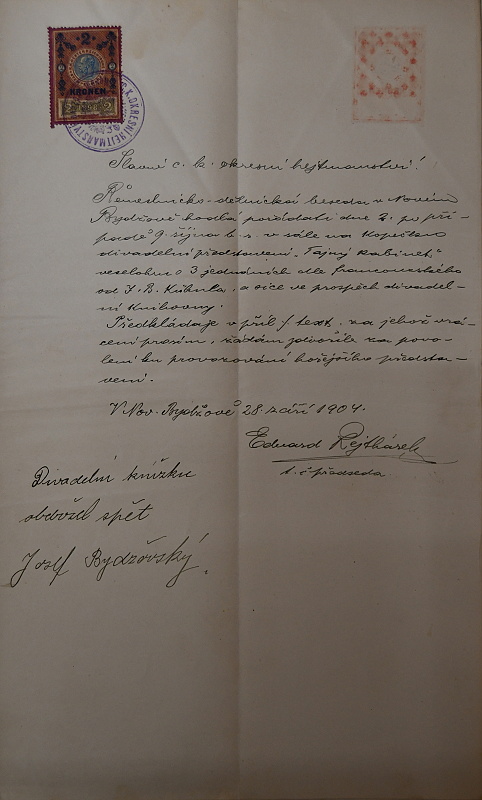 2
KRONEN
C. K. OKRESNÍ HEJTMANSTVÍ
Slavné c. k. okresní hejtmanství!
Řemeslnicko-dělnická beseda v Novém
Bydžově hodlá pořádati dne 2. po pří-
padě 9. října t. r. v sále na Kopečku
divadelní představení „Tajný kabinet,"
veselohru o 3 jednáních dle francouzského
od J. B. Kühnla, a sice ve prospěch divadel-
ní knihovny.
Předkládaje v příl / text, za jehož vrá-
cení prosím, žádám zdvořile za povo-
lení ku provozování hořejšího předsta-
vení.
V Nov. Bydžově 28. září 1904.
Eduard Rejthárek
t. č. předseda
Divadelní knížku
obdržel zpět
Josef Bydžovský